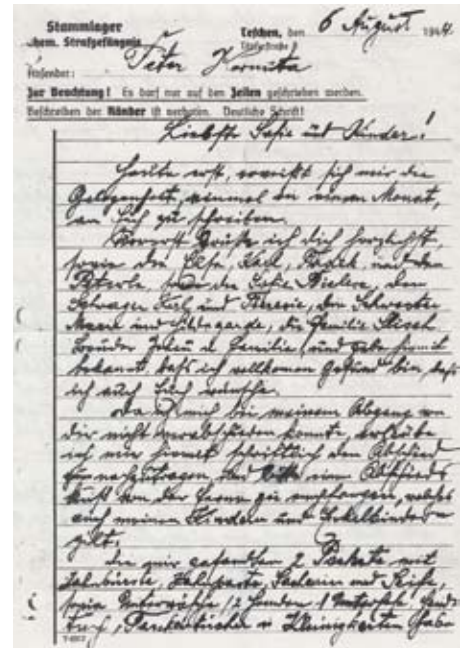 Stammlager
ehem. Strafgefängnis
Teschen, den 6 August 1944.
Absender: Peter Kornuta
Zur Beachtung! Es darf nur auf den Zeilen geschrieben werden.
Beschreiben der Ränder ist verboten. Deutliche Schrift!
Liebste Sofie und Kinder!
Heute erst, erweist sich mir die
Gelegenheit, einmal in einem Monat,
an Euch zu schreiben.
Vorerst Grüße ich dich herzlichst,
sowie die Else, Karl, und den
sowie die Sofie dem
Schwager Karl und Theresie, der Schwester
Marie und Hildegarde, die Familie
Bruder Familie, und gebe hiermit
bekannt, daß ich vollkommen Gesund bin, daß
ich auch Euch wünsche.
Da ich mich bei meinem Abgang von
dir nicht verabschieden konnte, erlaube
ich mir hiermit schriftlich den Abschied
nachzutragen, und bitte einen Abschieds
kuß von der Ferne zu empfangen, welches
auch meinen Kindern und Enkelkindern
gilt.
Die mir gesandten 2 Pakete mit
Zahnbürste, Zahnpasta, Sacharin und Seife,
sowie Unterwäsche (2 Hemden 1 Unterhose, Hand-
tuch, Taschentücher u Kleinigkeiten habe